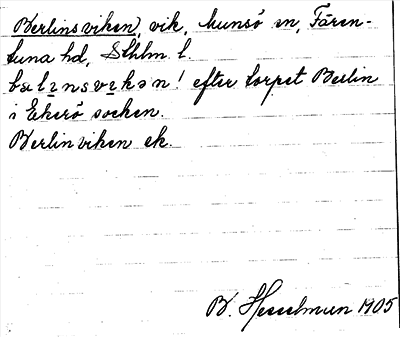 Berlinsviken, vik, Munsö sn, Fären-
tuna hd, Sthlm l.
bælɪnsvɪkən! efter torpet Berlin
i Ekerö socken.
Berlinviken ek.
B. Hesselman 1905